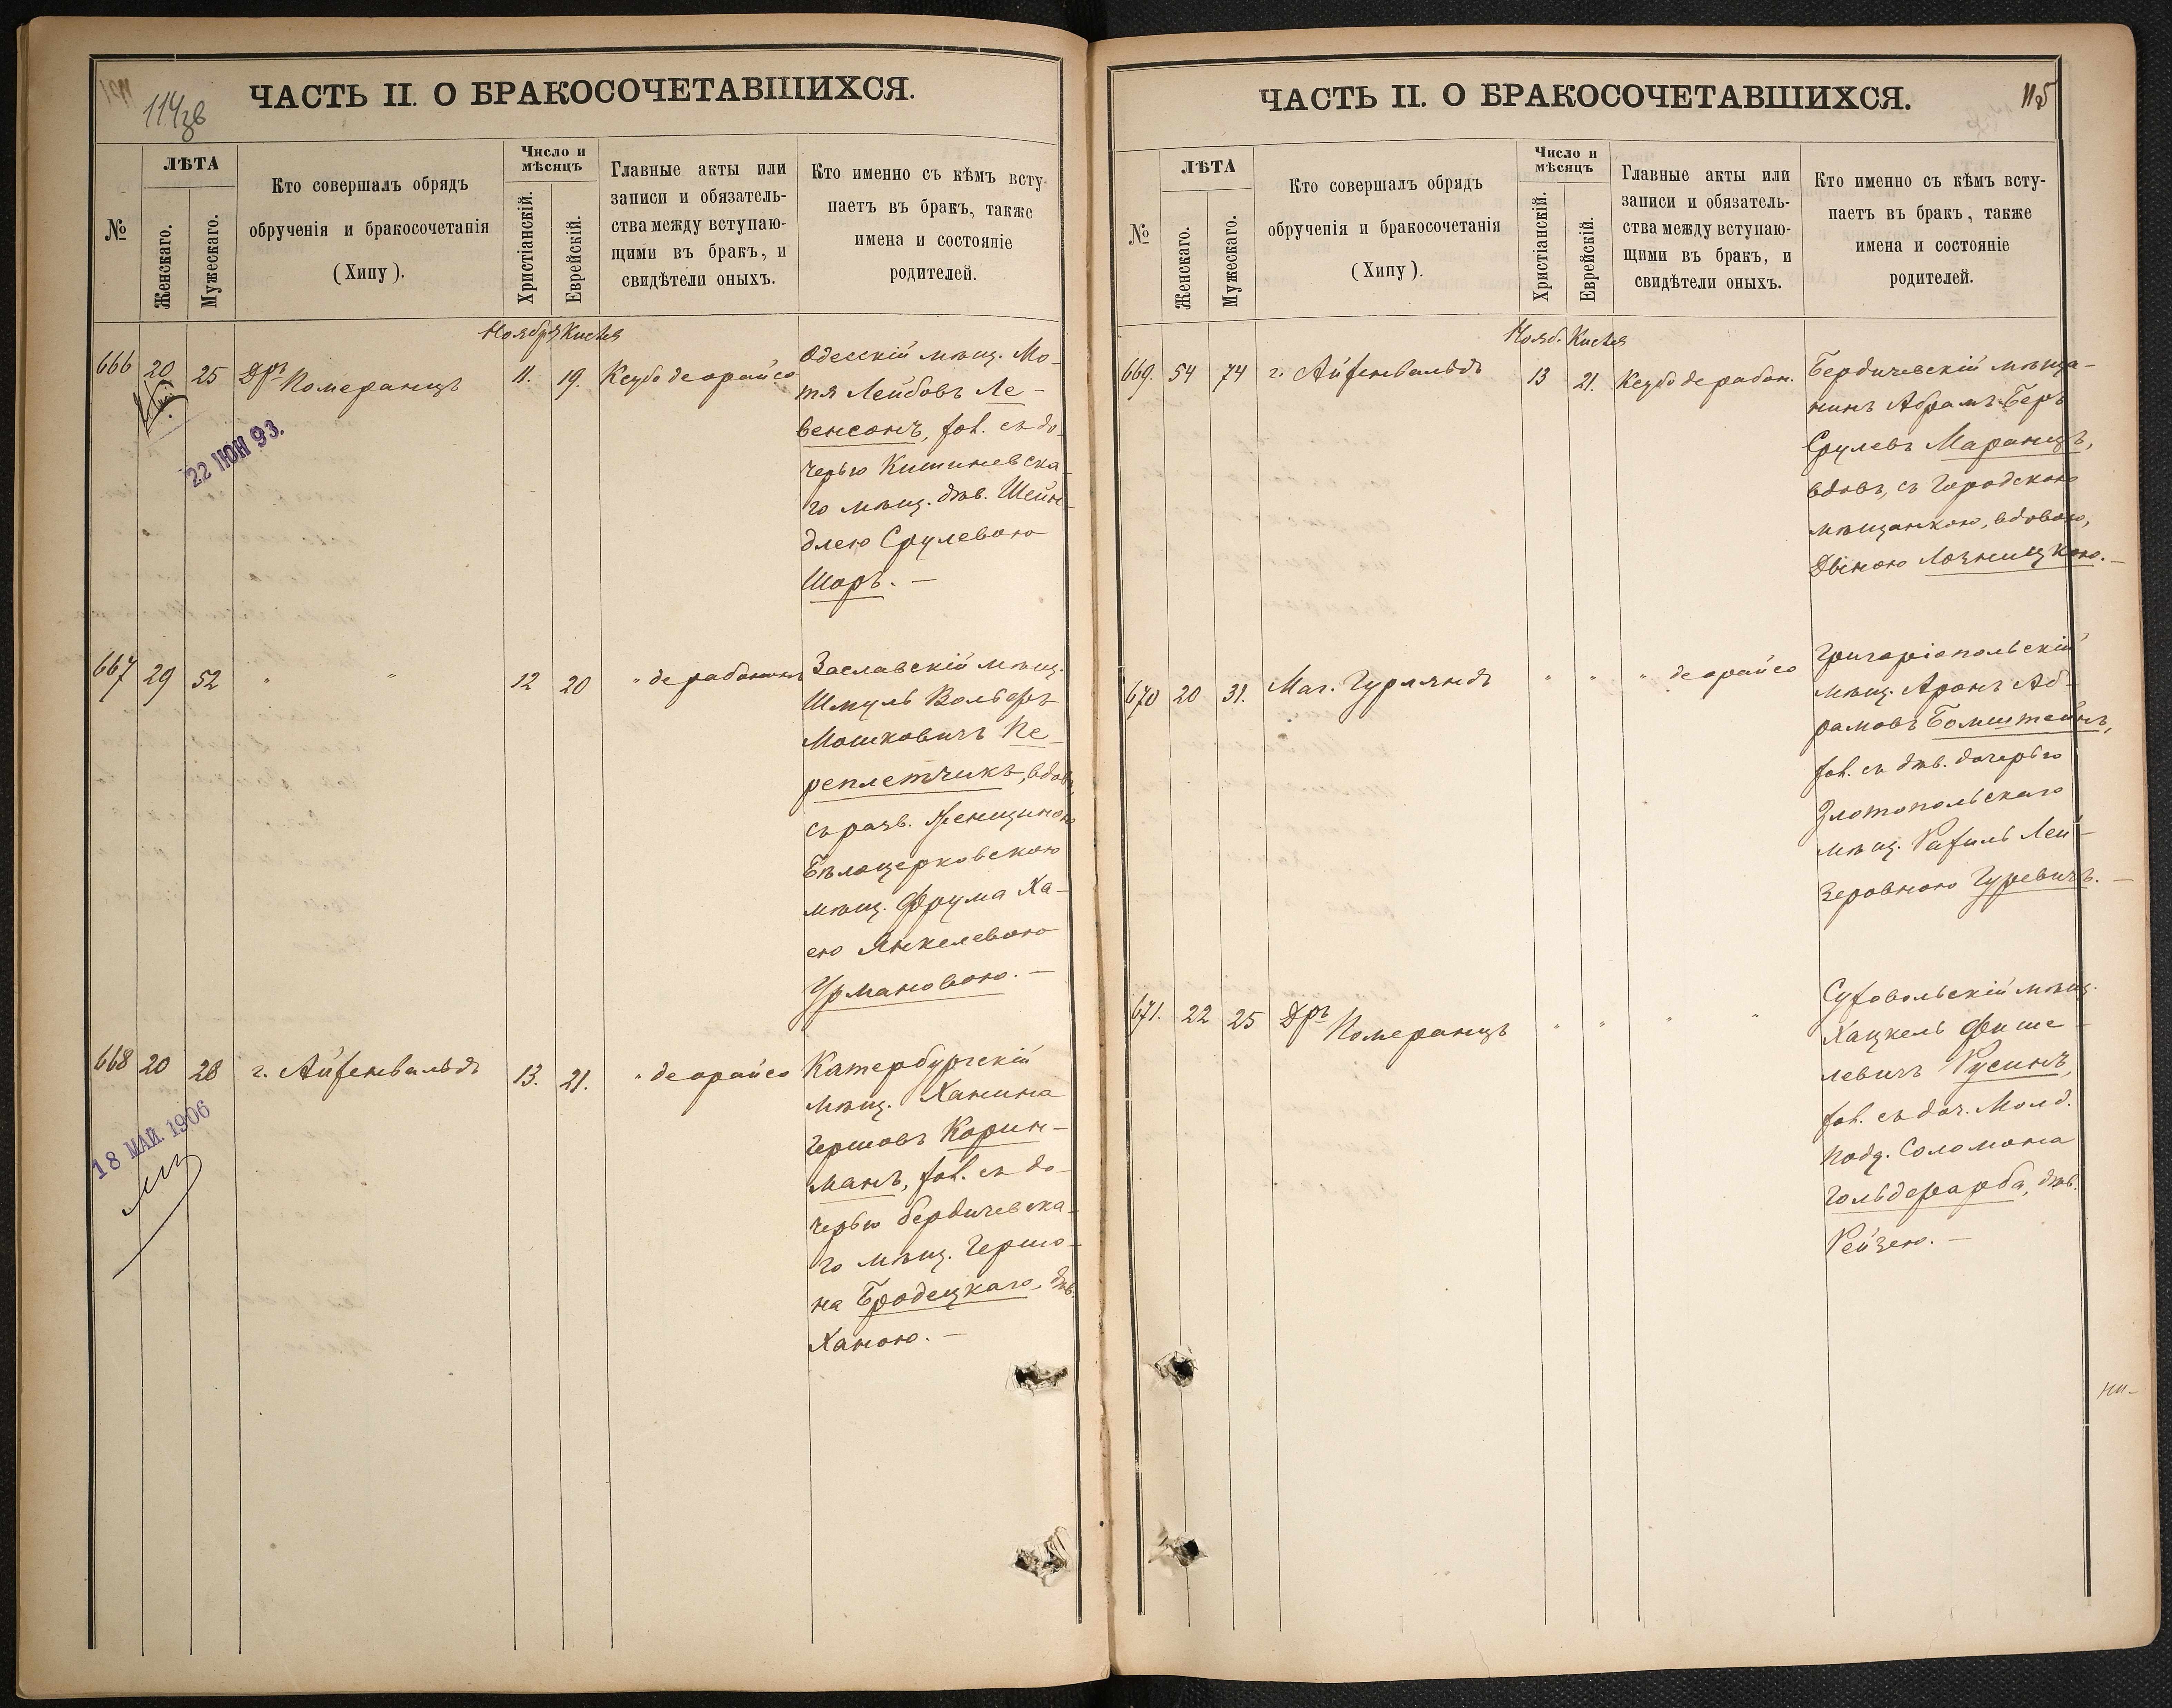 114зв
ЧАСТЬ II. О БРАКОСОЧЕТАВШИХСЯ.
№
ЛѢТА
Женскаго.
Мужескаго.
Кто совершалъ обрядъ
обрученія и бракосочетанія
(Хипу).
Число и
мѣсяцъ
Христіанскій.
Еврейскій.
Главные акты или
записи и обязатель-
ства между вступаю-
щими въ бракъ, и
свидѣтели оныхъ.
Кто именно съ кѣмъ всту-
паетъ въ бракъ, также
имена и состояніе
родителей.
Ноября Кислев
666 20 25 Дръ Померанцъ 11. 19. Ксубо деорайсо
Одесскій мѣщ. Мо-
тя Лейбовъ Ле-
венсонъ, хол. съ до-
черью Кишиневска-
го мѣщ. дѣв. Шейн-
длею Срулевою
Шоръ. —
22 ИЮН 93.
667 29 52 " " 12 20 " де рабонон
Заславскій мѣщ.
Шмуль Вольберъ
Мошковичъ Пе-
реплетчикъ, вдовъ,
съ разв. женщиною
Бѣлоцерковскою
мѣщ. Фрума Ха-
ею Янкелевою
Урмановою. —
668 20 28 г. Айзенвальдъ 13. 21. " деорайсо
Катербургскій
мѣщ. Ханина
Гершовъ Корин-
манъ, хол. съ до-
черью бердичевска-
го мѣщ. Гершо-
на Бродецкаго, дѣв.
Ханою. —
18 МАЙ 1906
115
ЧАСТЬ II. О БРАКОСОЧЕТАВШИХСЯ.
№
ЛѢТА
Женскаго.
Мужескаго.
Кто совершалъ обрядъ
обрученія и бракосочетанія
(Хипу).
Число и
мѣсяцъ
Христіанскій.
Еврейскій.
Главные акты или
записи и обязатель-
ства между вступаю-
щими въ бракъ, и
свидѣтели оныхъ.
Кто именно съ кѣмъ всту-
паетъ въ бракъ, также
имена и состояніе
родителей.
Нояб. Кислев
669. 54 74 г. Айзенвальдъ 13 21. Ксубо де рабон.
Бердичевскій мѣща-
нинъ Абрамъ-Беръ
Срулевъ Маранцъ,
вдовъ, съ Городскою
мѣщанкою, вдовою,
Двіною Лозницкою. —
670 20 31. Маг. Гурляндъ " " " деорайсо
Григоріопольскій
мѣщ. Аронъ Аб-
рамовъ Бомштейнъ,
хол. съ дѣв. дочерью
Златопольскаго
мѣщ. Рахиль Лей-
зеровною Гуревичъ. —
671. 22 25 Дръ Померанцъ " " " "
Суховольскій мѣщ.
Хацкель Фише-
левичъ Русинъ,
хол. съ доч. Молд.
подд. Соломона
Гольдфарба, дѣв.
Рейзею. —
ни-